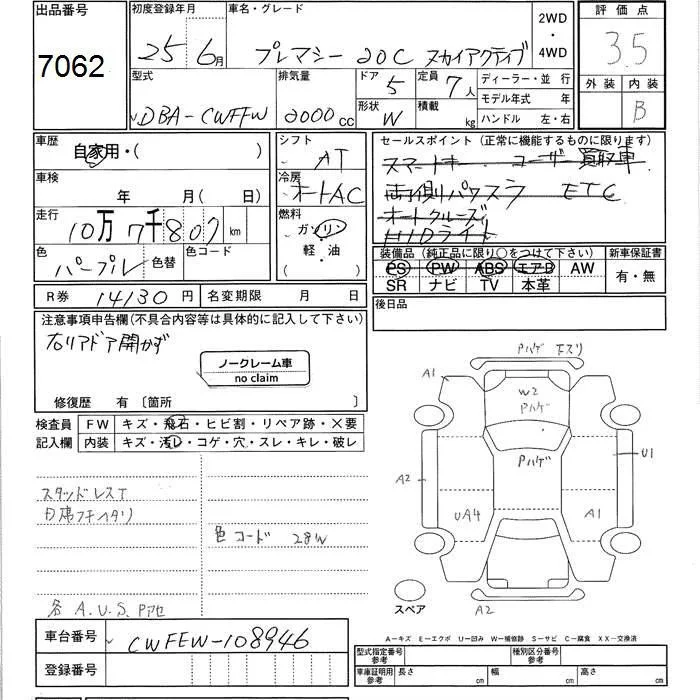 出品番号
7062
初度登録年月
25 6月
車名・グレード
プレマシー 20C スカイアクティブ
2WD
・
4WD
評価点
3.5
外装 内装
B
型式
DBA-CWFFW
排気量
2000cc
ドア
5
形状
W
定員
7人
積載
kg
ディーラー・並行
モデル年式 年
ハンドル 左・右
車歴
自家用・( )
車検
年 月(日)
走行
10万7千807km
色
パープル
色替
色コード
R券 14130円
名変期限 月 日
シフト
AT
冷房
オートAC
燃料
ガソリン
・
軽・油
セールスポイント (正常に機能するものに限ります)
スマートキー ユーザー買取車
両側パワスラ ETC
オートクルーズ
HIDライト
装備品 (純正品に限り○をつけて下さい)
PS PW ABS エアB AW
SR ナビ TV 本革
新車保証書
有・無
後日品
注意事項申告欄(不具合内容等は具体的に記入して下さい)
右リアドア開かず
ノークレーム車
no claim
修復歴 有〔箇所 〕
検査員
記入欄
FW キズ・飛石・ヒビ割・リペア跡・×要
内装 キズ・汚レ・コゲ・穴・スレ・キレ・破レ
スタッドレスT
色コード 28W
各 A.U.S. Pアセ
Pハゲ 下スリ
A1
W2
Pハゲ
Pハゲ
U1
A2
UA4
A1
スペア
A2
A-キズ E-エクボ U-凹み W-補修跡 S-サビ C-腐食 XX-交換済
車台番号
CWFFW-108946
登録番号
型式指定番号
参考
種別区分番号
参考
車庫証明用
参考
長さ cm
幅 cm
高さ cm